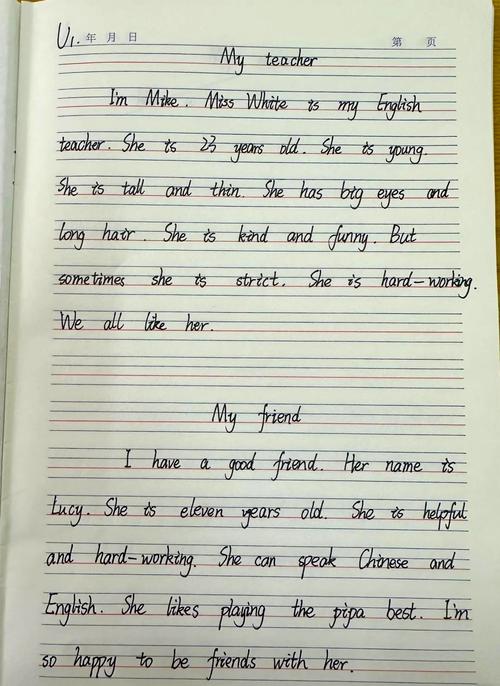 U1. 年 月 日 第 页
My teacher
I'm Mike. Miss White is my English
teacher. She is 23 years old. She is young.
She is tall and thin. She has big eyes and
long hair. She is kind and funny. But
sometimes she is strict. She is hard-working.
We all like her.
My friend
I have a good friend. Her name is
Lucy. She is eleven years old. She is helpful
and hard-working. She can speak Chinese and
English. She likes playing the pipa best. I'm
so happy to be friends with her.